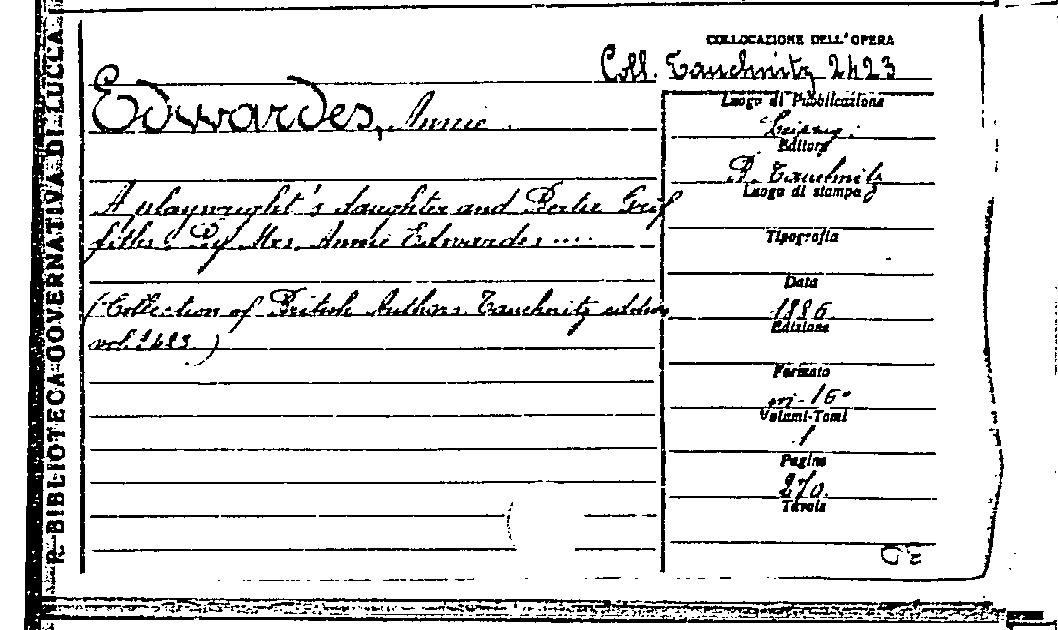 R. BIBLIOTECA GOVERNATIVA DI LUCCA
COLLOCAZIONE DELL'OPERA
Coll. Tauchnitz 2423
Edwardes, Annie
A playwright's daughter and Bertie Grif
fiths. By Mrs. Annie Edwardes....
(Collection of British Authors. Tauchnitz edition
vol. 2423.)
Luogo di Pubblicazione
Leipzig.
Editore
B. Tauchnitz
Luogo di stampa
Tipografia
Data
1886
Edizione
Formato
in-16°
Volumi-Tomi
1
Pagine
270.
Tavole